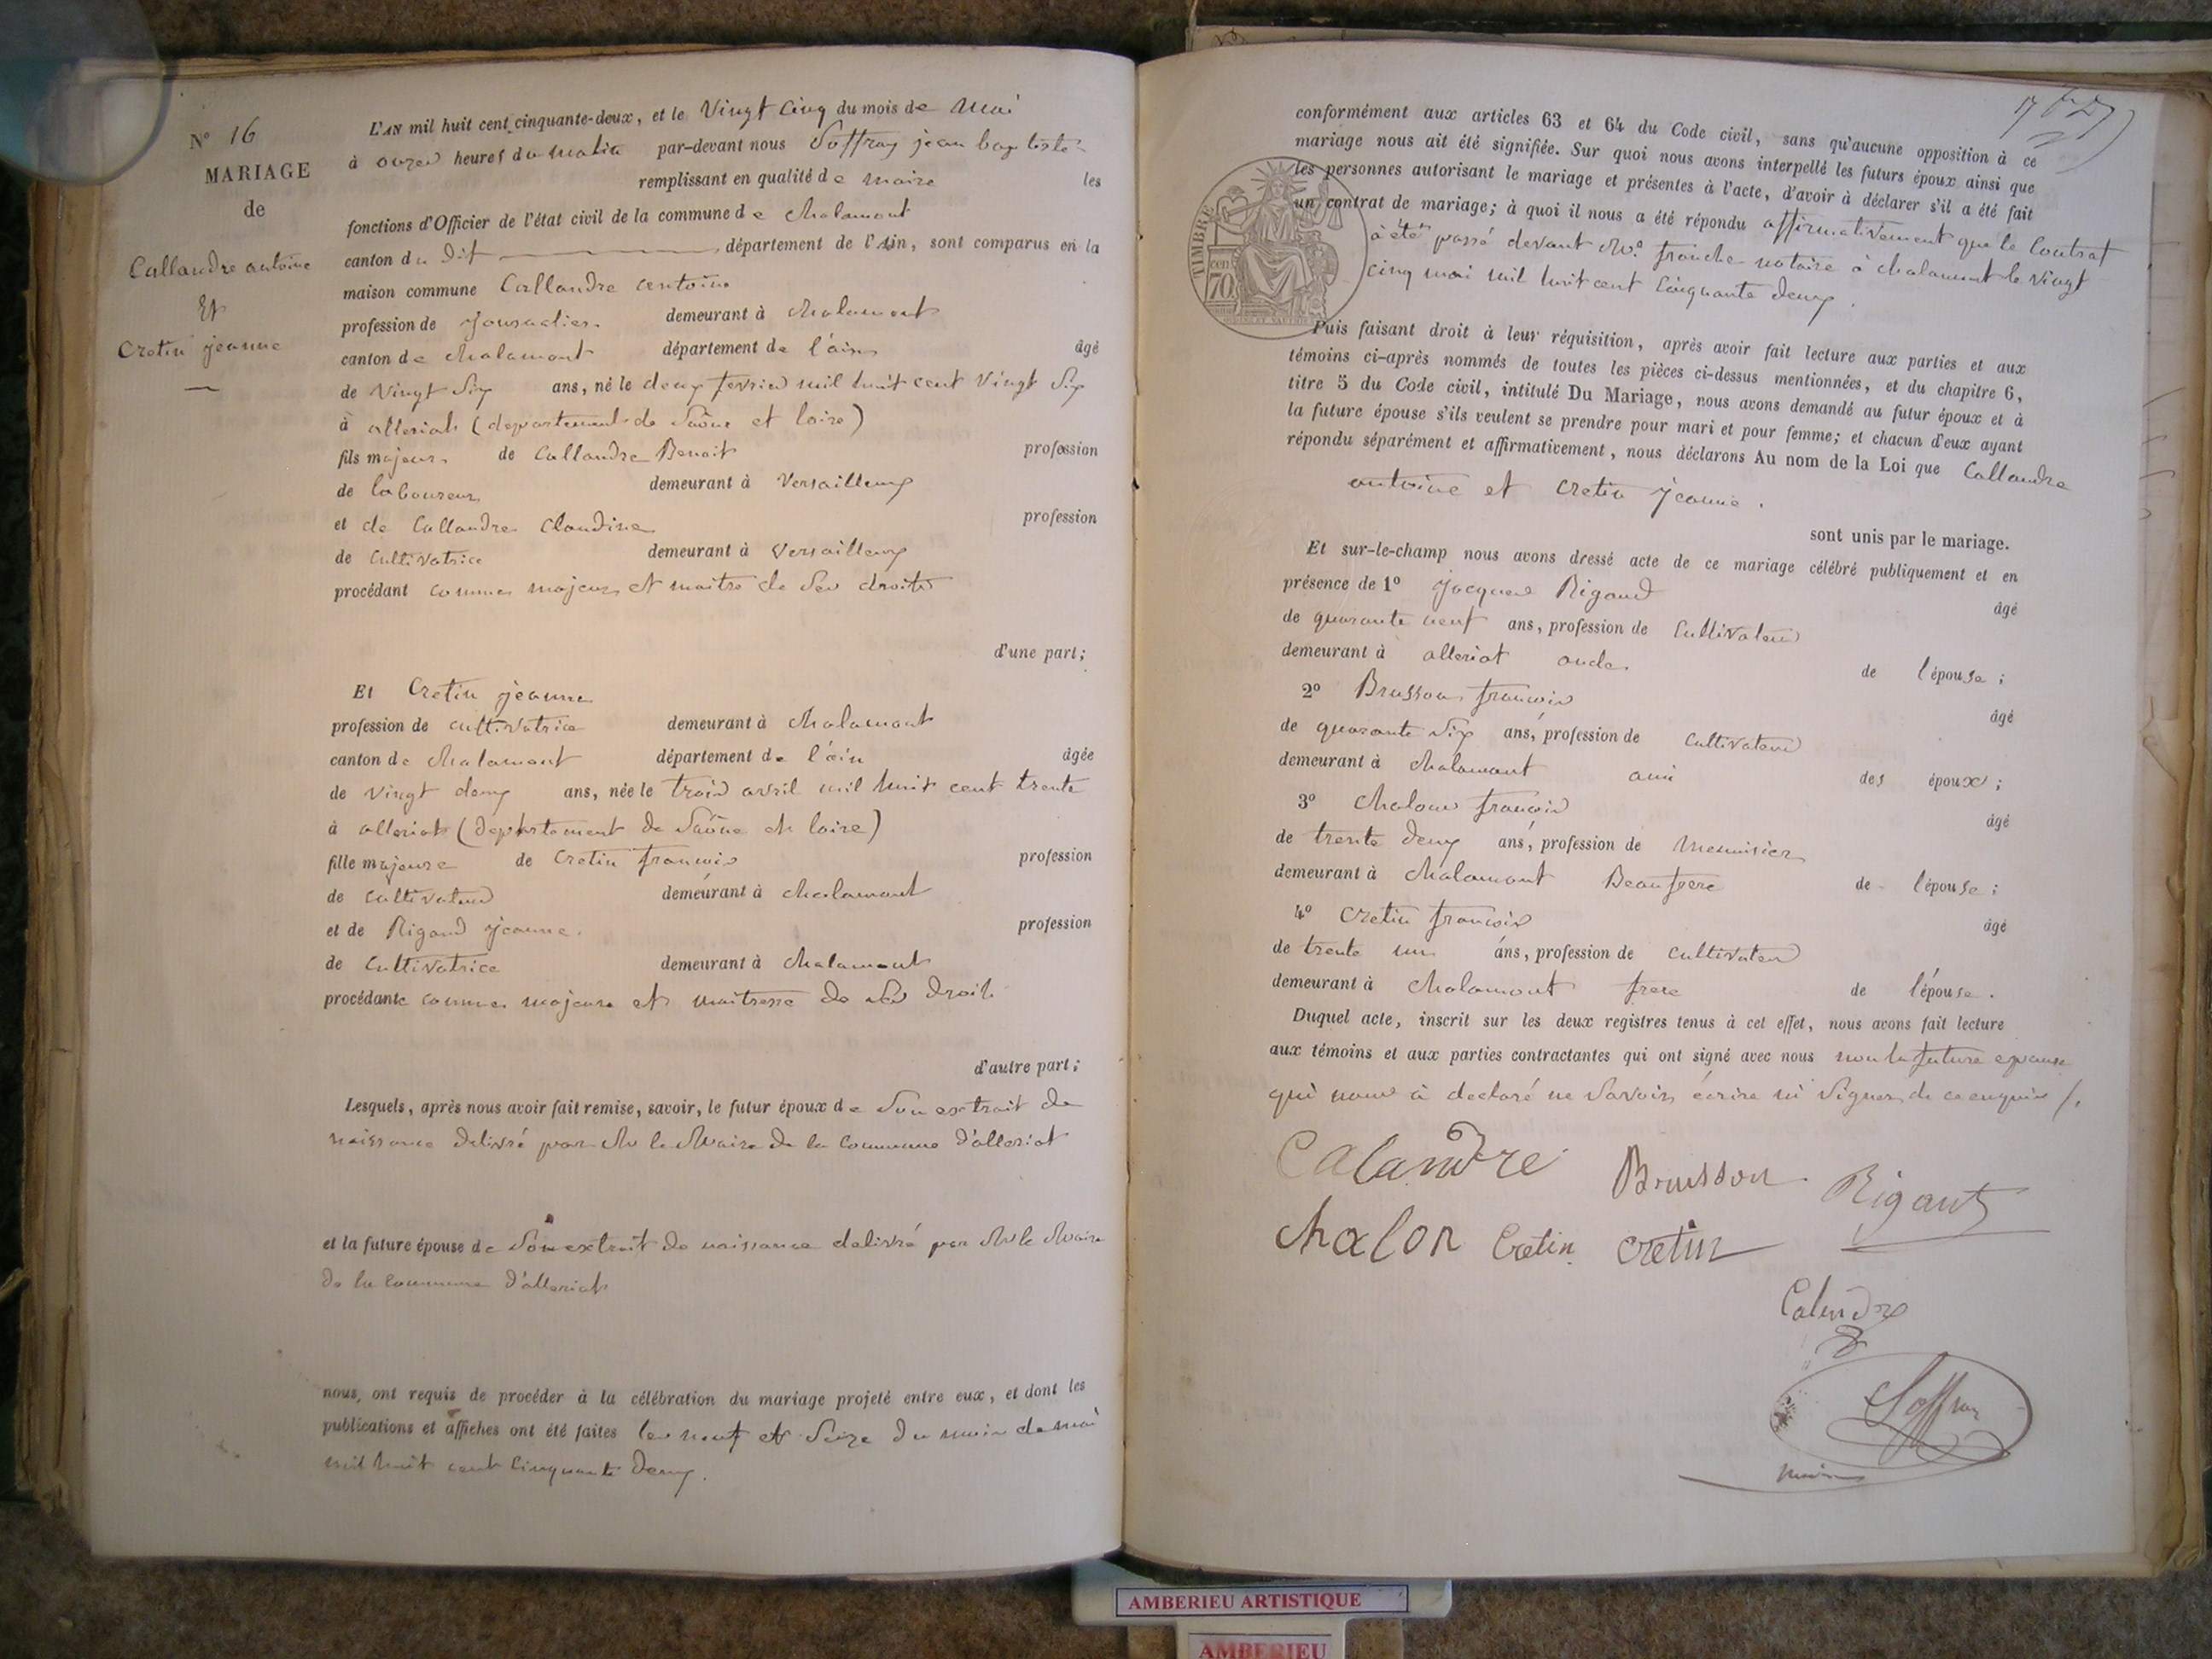 N° 16
MARIAGE
de
Callandre antoine
Et
Cretin jeanne
L'AN mil huit cent cinquante-deux, et le Vingt Cinq du mois de Mai
à onze heures du matin par-devant nous Soffray jean baptiste
remplissant en qualité de maire les
fonctions d'Officier de l'état civil de la commune de chalamont
canton du dit département de l'Ain, sont comparus en la
maison commune Callandre antoine
profession de Journalier demeurant à chalamont
canton de chalamont département de l'ain âgé
de Vingt Six ans, né le deux fevrier mil huit cent Vingt Six
à alleriat (departement de Saône et loire)
fils majeur de Callandre Benoit profession
de laboureur demeurant à Versailleux
et de Callandre Claudine profession
de Cultivatrice demeurant à Versailleux
procédant comme majeur et maitre de Ses droits
d'une part;
Et Cretin jeanne
profession de cultivatrice demeurant à chalamont
canton de chalamont département de l'ain âgée
de Vingt deux ans, née le trois avril mil huit cent trente
à alleriat (departement de Saône et loire)
fille majeure de Cretin francois profession
de Cultivateur demeurant à chalamont
et de Rigaud jeanne profession
de Cultivatrice demeurant à chalamont
procédante comme majeure et maitresse de Ses droits
d'autre part;
Lesquels, après nous avoir fait remise, savoir, le futur époux de Son extrait de
naissance delivré par Mr le Maire de la Commune d'alleriat
et la future épouse de Son extrait de naissance delivré par Mr le Maire
de la Commune d'alleriat
nous, ont requis de procéder à la célébration du mariage projeté entre eux, et dont les
publications et affiches ont été faites les neuf et Seize du mois de mai
mil huit cent Cinquante deux.
conformément aux articles 63 et 64 du Code civil, sans qu'aucune opposition à ce
mariage nous ait été signifiée. Sur quoi nous avons interpellé les futurs époux ainsi que
les personnes autorisant le mariage et présentes à l'acte, d'avoir à déclarer s'il a été fait
un contrat de mariage; à quoi il nous a été répondu affirmativement que le Contrat
à été passé devant Me. franche notaire à chalamont le Vingt
cinq mai mil huit cent Cinquante deux.
TIMBRE
70
Puis faisant droit à leur réquisition, après avoir fait lecture aux parties et aux
témoins ci-après nommés de toutes les pièces ci-dessus mentionnées, et du chapitre 6,
titre 5 du Code civil, intitulé Du Mariage, nous avons demandé au futur époux et à
la future épouse s'ils veulent se prendre pour mari et pour femme; et chacun d'eux ayant
répondu séparément et affirmativement, nous déclarons Au nom de la Loi que Callandre
antoine et Cretin Jeanne.
sont unis par le mariage.
Et sur-le-champ nous avons dressé acte de ce mariage célébré publiquement et en
présence de 1° Jacques Rigaud âgé
de quarante neuf ans, profession de Cultivateur
demeurant à alleriat oncle de l'épouse;
2° Brusson francois âgé
de quarante Six ans, profession de Cultivateur
demeurant à chalamont ami des époux;
3° Chalon francois âgé
de trente deux ans, profession de Menuisier
demeurant à chalamont Beaufrere de l'épouse;
4° Cretin francois âgé
de trente un ans, profession de cultivateur
demeurant à chalamont frere de l'épouse.
Duquel acte, inscrit sur les deux registres tenus à cet effet, nous avons fait lecture
aux témoins et aux parties contractantes qui ont signé avec nous non la future epouse
qui nous à declaré ne Savoir écrire ni Signer de ce enquis /.
Calandre Brusson Rigaud
chalon Cretin cretin
Calandre
Soffray
AMBERIEU ARTISTIQUE
AMBERIEU